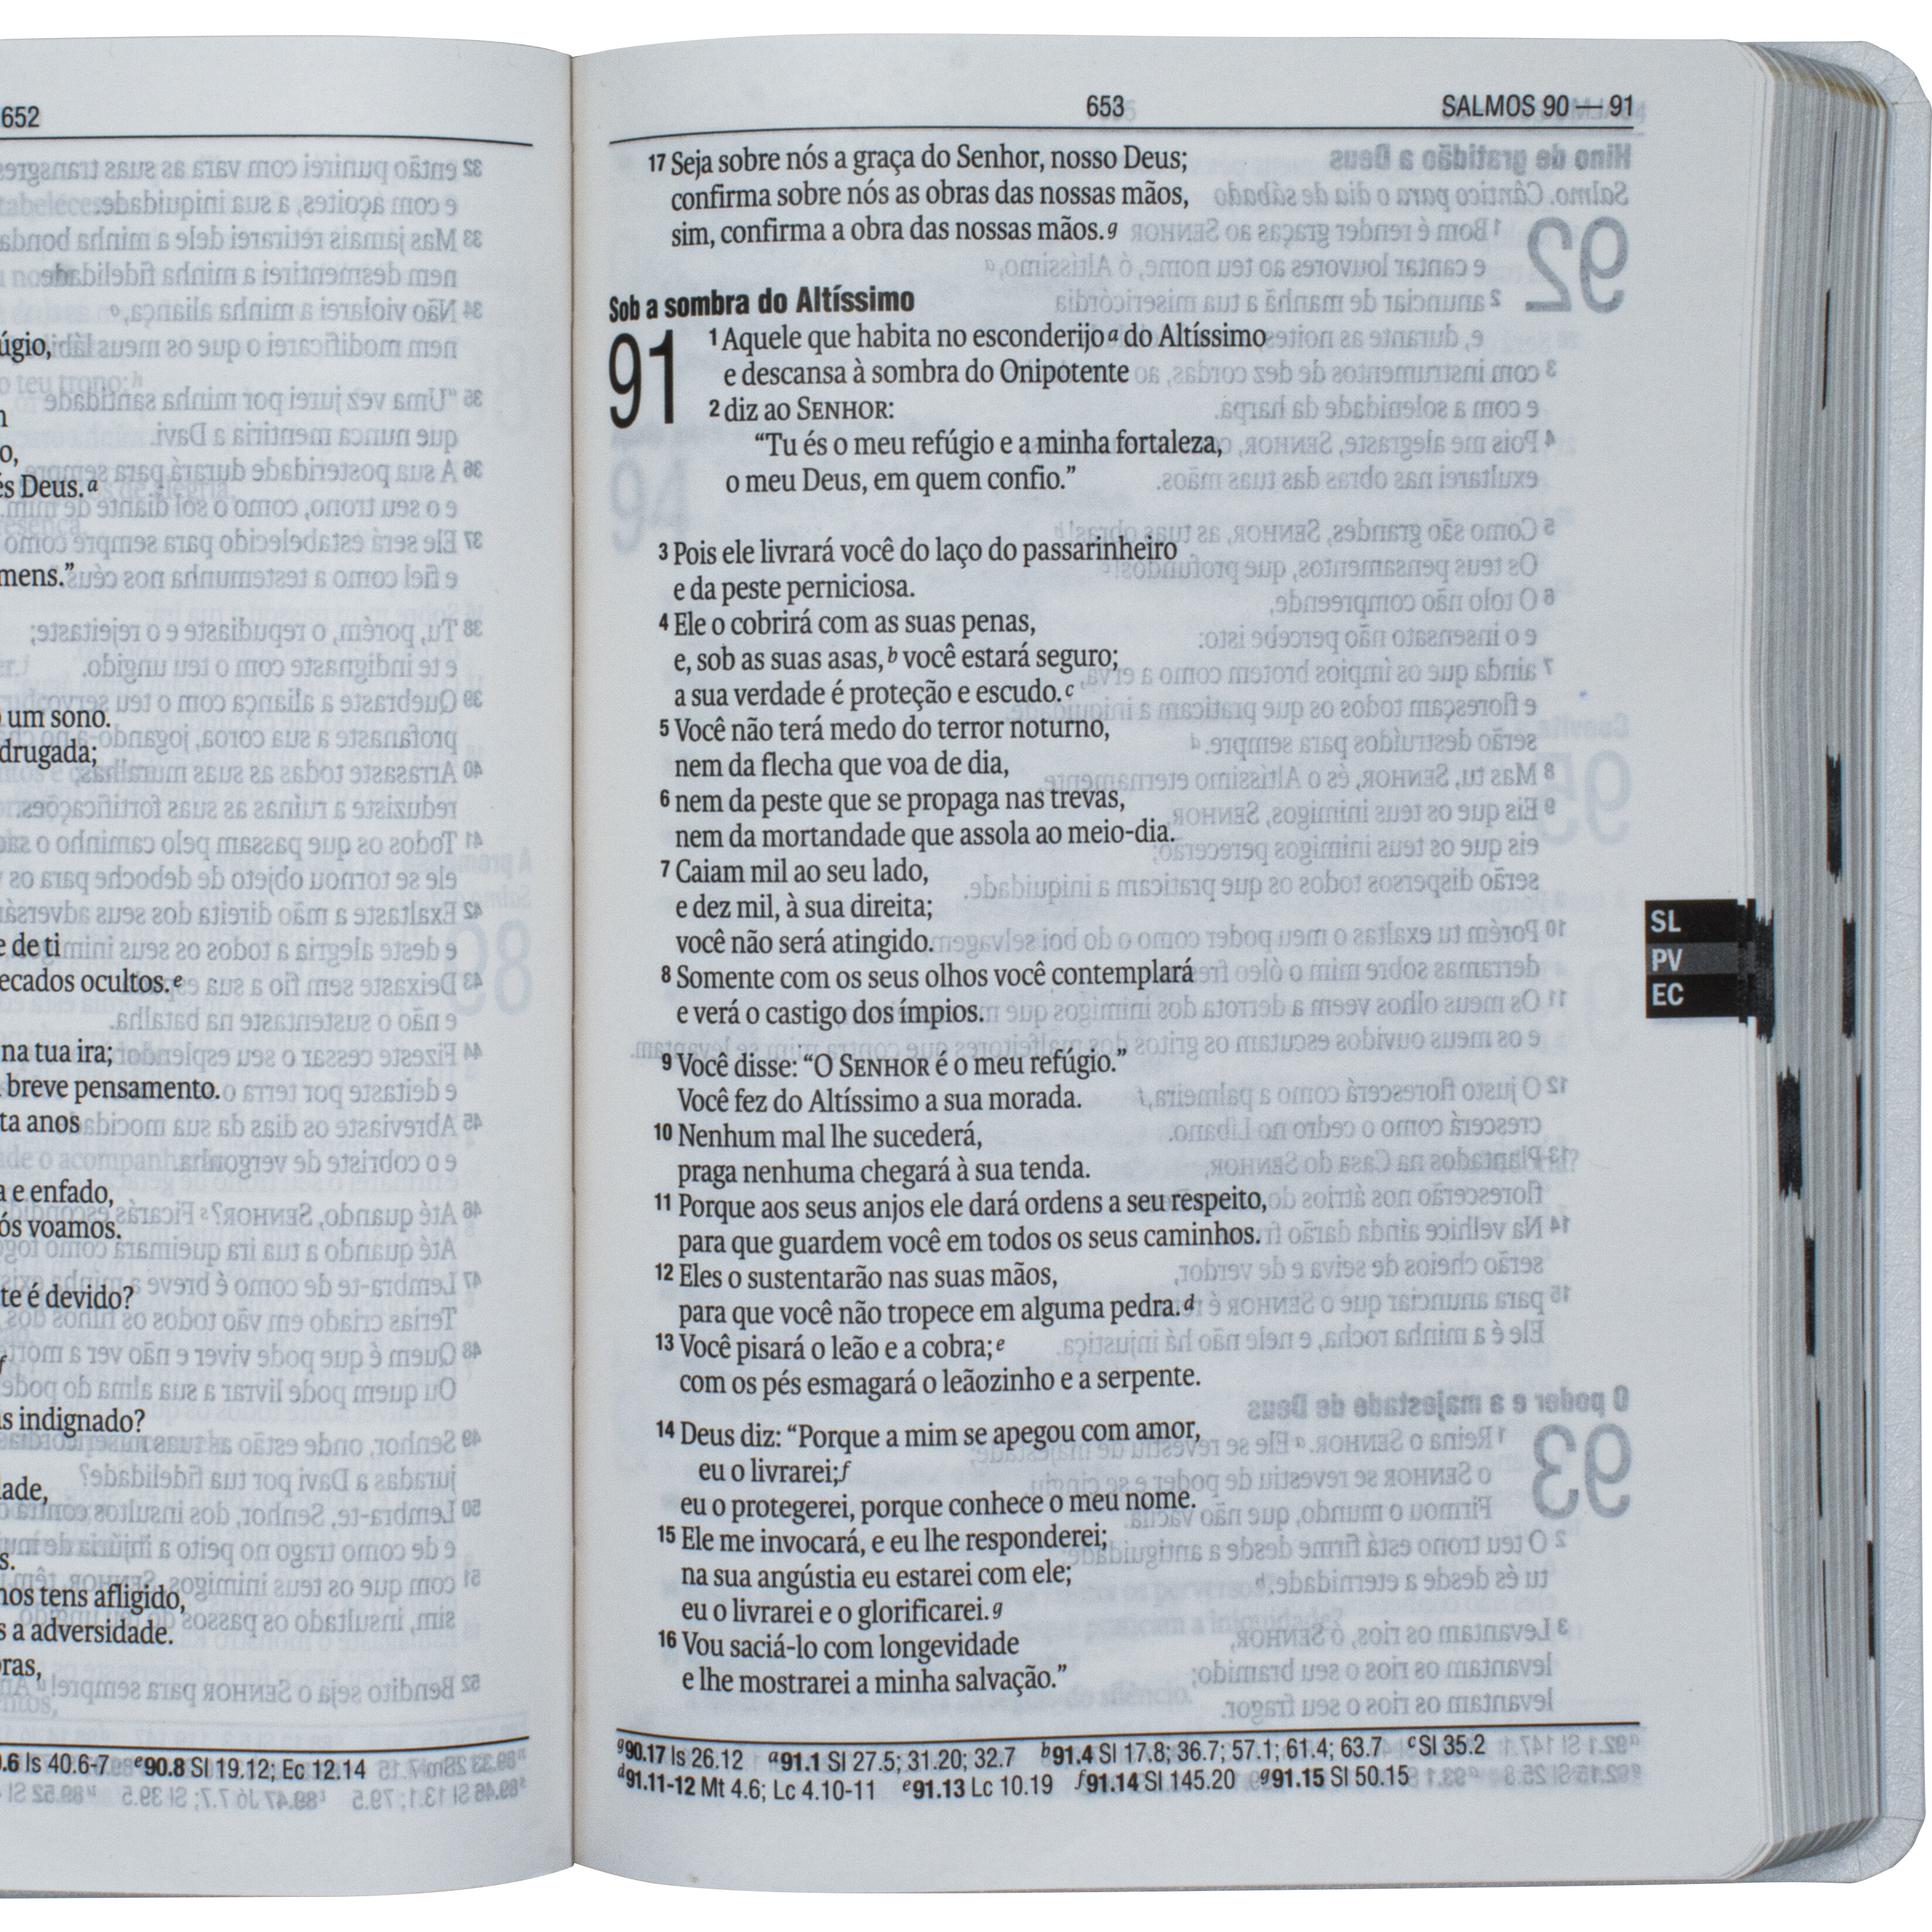 652
úgio,
és Deus.a
mens.”
um sono.
drugada;
e de ti
ecados ocultos.e
na tua ira;
breve pensamento.
ta anos
a e enfado,
ós voamos.
te é devido?
f
s indignado?
dade,
s.
nos tens afligido,
s a adversidade.
bras,
.6 Is 40.6-7 e90.8 Sl 19.12; Ec 12.14
653 SALMOS 90 — 91
17 Seja sobre nós a graça do Senhor, nosso Deus;
confirma sobre nós as obras das nossas mãos,
sim, confirma a obra das nossas mãos.g
Sob a sombra do Altíssimo
91 1 Aquele que habita no esconderijo a do Altíssimo
e descansa à sombra do Onipotente
2 diz ao SENHOR:
“Tu és o meu refúgio e a minha fortaleza,
o meu Deus, em quem confio.”
3 Pois ele livrará você do laço do passarinheiro
e da peste perniciosa.
4 Ele o cobrirá com as suas penas,
e, sob as suas asas,b você estará seguro;
a sua verdade é proteção e escudo.c
5 Você não terá medo do terror noturno,
nem da flecha que voa de dia,
6 nem da peste que se propaga nas trevas,
nem da mortandade que assola ao meio-dia.
7 Caiam mil ao seu lado,
e dez mil, à sua direita;
você não será atingido.
8 Somente com os seus olhos você contemplará
e verá o castigo dos ímpios.
9 Você disse: “O SENHOR é o meu refúgio.”
Você fez do Altíssimo a sua morada.
10 Nenhum mal lhe sucederá,
praga nenhuma chegará à sua tenda.
11 Porque aos seus anjos ele dará ordens a seu respeito,
para que guardem você em todos os seus caminhos.
12 Eles o sustentarão nas suas mãos,
para que você não tropece em alguma pedra.d
13 Você pisará o leão e a cobra;e
com os pés esmagará o leãozinho e a serpente.
14 Deus diz: “Porque a mim se apegou com amor,
eu o livrarei;f
eu o protegerei, porque conhece o meu nome.
15 Ele me invocará, e eu lhe responderei;
na sua angústia eu estarei com ele;
eu o livrarei e o glorificarei.g
16 Vou saciá-lo com longevidade
e lhe mostrarei a minha salvação.”
g90.17 Is 26.12 a91.1 Sl 27.5; 31.20; 32.7 b91.4 Sl 17.8; 36.7; 57.1; 61.4; 63.7 cSl 35.2
d91.11-12 Mt 4.6; Lc 4.10-11 e91.13 Lc 10.19 f91.14 Sl 145.20 g91.15 Sl 50.15
SL
PV
EC